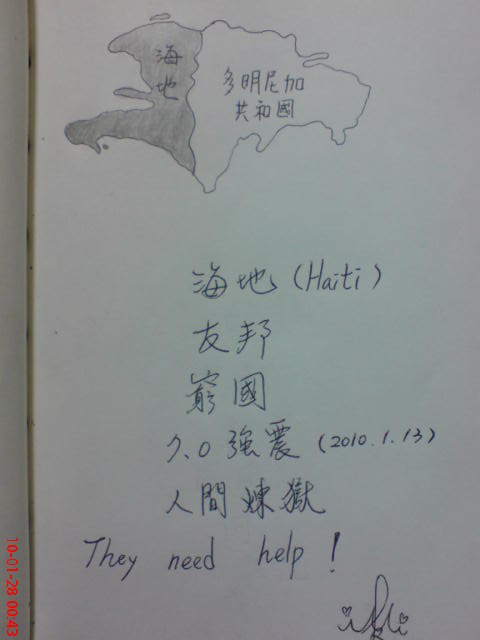 海
地
多明尼加
共和國
海地 (Haiti)
友邦
窮國
7.0強震 (2010.1.13)
人間煉獄
They need help!
10-01-28 00:43